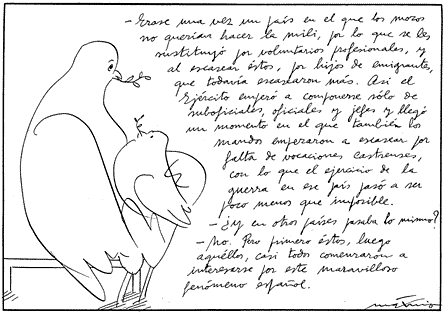 - Érase una vez un país en el que los mozos
no querían hacer la mili, por lo que se les
sustituyó por voluntarios profesionales, y
al escasear éstos, por hijos de emigrantes,
que todavía escasearon más. Así el
Ejército empezó a componerse sólo de
suboficiales, oficiales y jefes y llegó
un momento en el que también los
mandos empezaron a escasear por
falta de vocaciones castrenses,
con lo que el ejercicio de la
guerra en ese país pasó a ser
poco menos que imposible.
- ¿Y en otros países pasaba lo mismo?
- No. Pero primero éstos, luego
aquéllos, casi todos comenzaron a
interesarse por este maravilloso
fenómeno español.
máximo